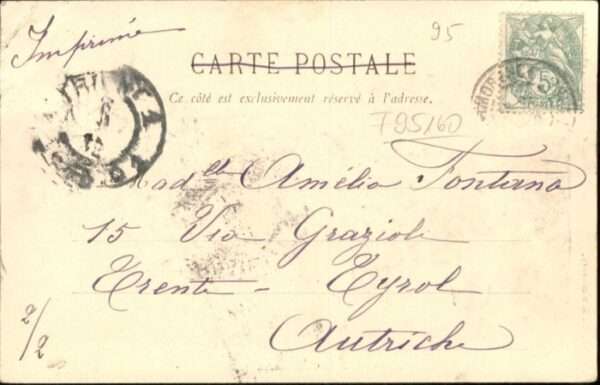 Imprimé
95
CARTE POSTALE
Ce côté est exclusivement réservé à l'adresse.
F95160
Madlle Amélia Fontana
15 Via Grazioli
Trente - Tyrol
Autriche
2/2